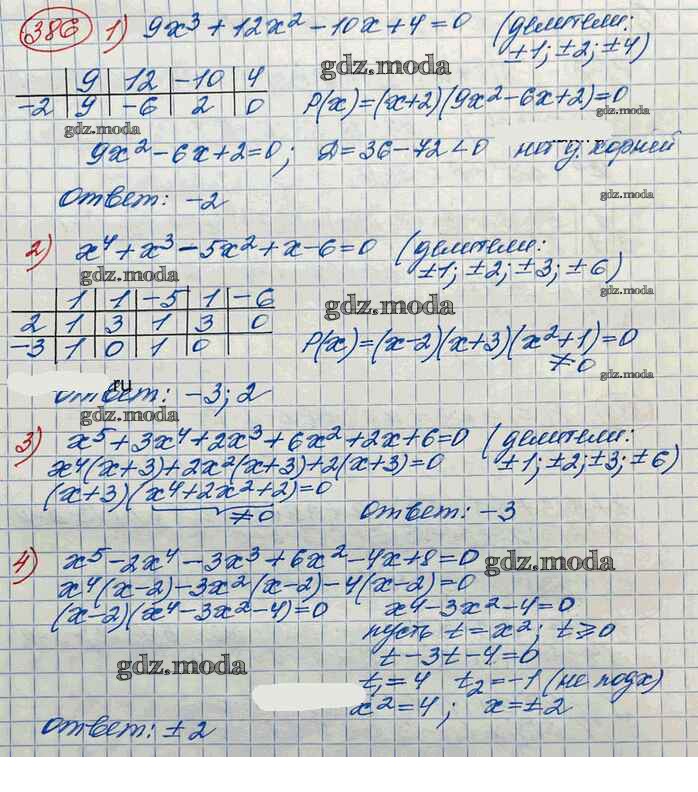 386 1) 9x³+12x²-10x+4=0 (делители:
±1; ±2; ±4)
gdz.moda
9 12 -10 4
-2 9 -6 2 0 P(x)=(x+2)(9x²-6x+2)=0
gdz.moda gdz.moda
9x²-6x+2=0; D=36-72<0 корней
Ответ: -2 gdz.moda
2) x⁴+x³-5x²+x-6=0 (делители:
±1; ±2; ±3; ±6)
gdz.moda gdz.moda
1 1 -5 1 -6 gdz.moda
2 1 3 1 3 0
-3 1 0 1 0 P(x)=(x-2)(x+3)(x²+1)=0
≠0
gdz.moda
ru
Ответ: -3; 2
gdz.moda
3) x⁵+3x⁴+2x³+6x²+2x+6=0 (делители:
x⁴(x+3)+2x²(x+3)+2(x+3)=0 ±1; ±2; ±3; ±6)
(x+3)(x⁴+2x²+2)=0
≠0 Ответ: -3
4) x⁵-2x⁴-3x³+6x²-4x+8=0 gdz.moda
x⁴(x-2)-3x²(x-2)-4(x-2)=0
(x-2)(x⁴-3x²-4)=0 x⁴-3x²-4=0
пусть t=x²; t≥0
gdz.moda t-3t-4=0
t₁=4 t₂=-1 (не подх)
x²=4; x=±2
Ответ: ±2